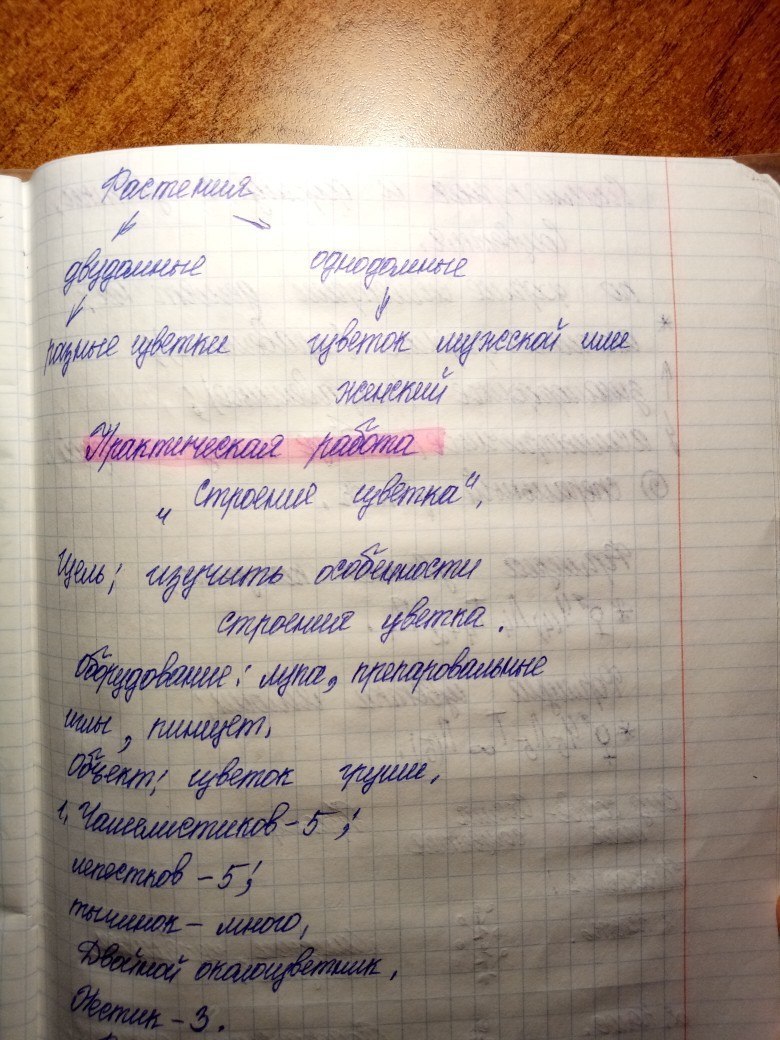 Растения
двудомные однодомные
разные цветки цветок мужской или
женский
Практическая работа
„ строение цветка".
Цель: изучить особенности
строения цветка.
Оборудование: лупа, препаровальные
иглы, пинцет.
Объект: цветок груши.
1. Чашелистиков - 5;
лепестков - 5;
тычинок - много,
Двойной околоцветник,
Пестик - 3.